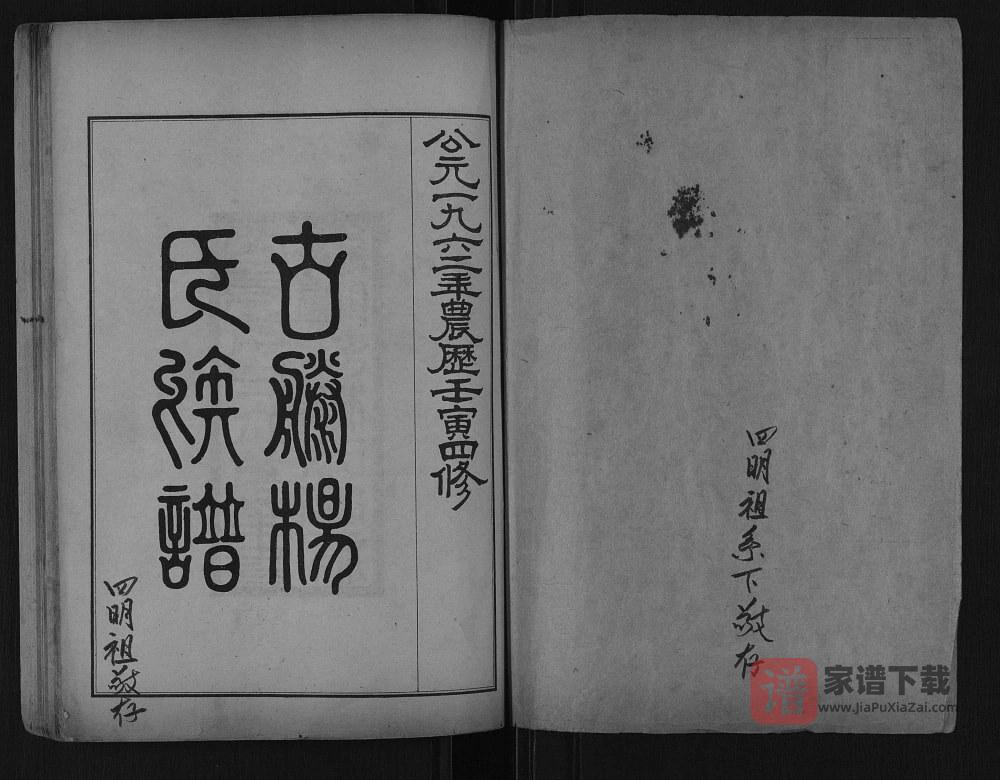 四明祖系下敬存
公元一九六二年農歷壬寅四修
古滕楊
氏族譜
四明祖敬存
谱
家谱下载
www.JiaPuXiaZai.com